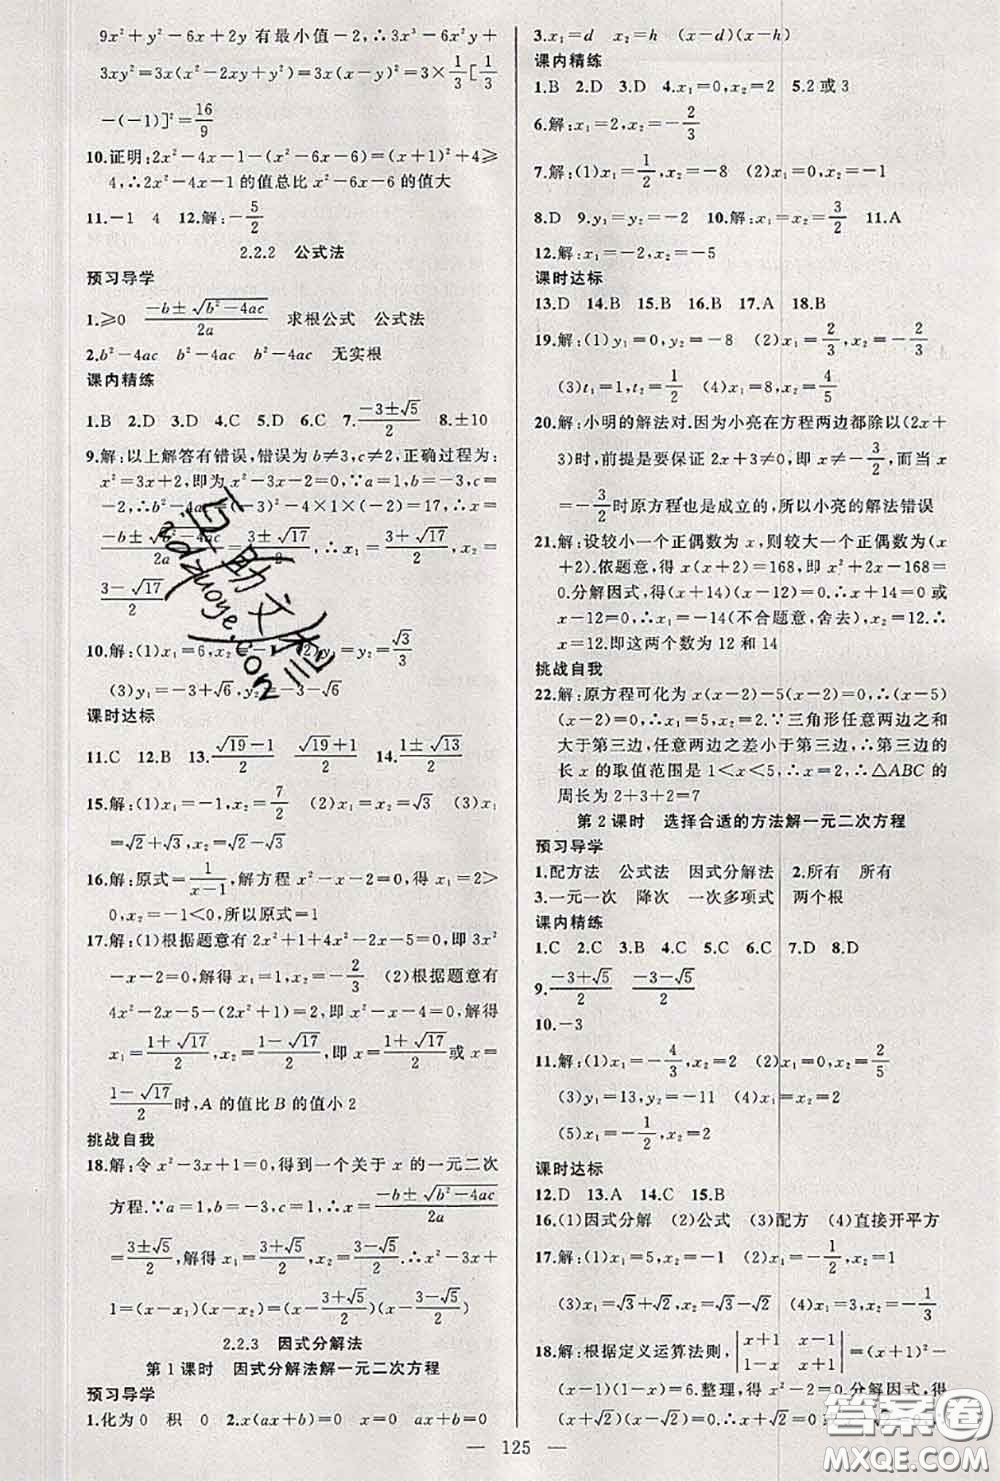 9x²+y²-6x+2y 有最小值-2,∴3x³-6x²y+
3xy²=3x(x²-2xy+y²)=3x(x-y)²=3×1/3[1/3
-(-1)]²=16/9
10.证明:2x²-4x-1-(x²-6x-6)=(x+1)²+4≥
4,∴2x²-4x-1 的值总比 x²-6x-6 的值大
11.-1 4 12.解:-5/2
2.2.2 公式法
预习导学
1.≥0 (-b±√(b²-4ac))/2a 求根公式 公式法
2.b²-4ac b²-4ac b²-4ac 无实根
课内精练
1.B 2.D 3.D 4.C 5.D 6.C 7.(-3±√5)/2 8.±10
9.解:以上解答有错误,错误为 b≠3,c≠2,正确过程为:
x²=3x+2,即为 x²-3x-2=0,∵a=1,b=-3,c=
-2,∴b²-4ac=(-3)²-4×1×(-2)=17,∴x=
(-b±√(b²-4ac))/2a=(3±√17)/2,∴x₁=(3+√17)/2,x₂=
(3-√17)/2
10.解:(1)x₁=6,x₂=-2 (2)y₁=y₂=√3/2
(3)y₁=-3+√6,y₂=-3-√6
课时达标
11.C 12.B 13.(√19-1)/2 (√19+1)/2 14.(1±√13)/2
15.解:(1)x₁=-1,x₂=7/2 (2)x₁=x₂=√3 (3)x₁
=√2+√3,x₂=√2-√3
16.解:原式=1/(x-1),解方程 x²-x-2=0,得 x₁=2>
0,x₂=-1<0,所以原式=1
17.解:(1)根据题意有 2x²+1+4x²-2x-5=0,即 3x²
-x-2=0,解得 x₁=1,x₂=-2/3 (2)根据题意有
4x²-2x-5-(2x²+1)=2,即 x²-x-4=0,解得
x₁=(1+√17)/2,x₂=(1-√17)/2,即 x=(1+√17)/2或 x=
(1-√17)/2时,A 的值比 B 的值小 2
挑战自我
18.解:令 x²-3x+1=0,得到一个关于 x 的一元二次
方程.∵a=1,b=-3,c=1,∴x=(-b±√(b²-4ac))/2a
=(3±√5)/2,解得 x₁=(3+√5)/2,x₂=(3-√5)/2.∴x²-3x+
1=(x-x₁)(x-x₂)=(x-(3+√5)/2)(x-(3-√5)/2)
2.2.3 因式分解法
第 1 课时 因式分解法解一元二次方程
预习导学
1.化为 0 积 0 2.x(ax+b)=0 x=0 ax+b=0
3.x₁=d x₂=h (x-d)(x-h)
课内精练
1.B 2.D 3.D 4.x₁=0,x₂=2 5.2 或 3
6.解:x₁=2,x₂=-2/3
7.解:(1)x₁=1/2,x₂=-8 (2)x₁=0,x₂=-1
8.D 9.y₁=y₂=-2 10.解:x₁=x₂=3/2 11.A
12.解:x₁=-2,x₂=-5
课时达标
13.D 14.B 15.B 16.B 17.A 18.B
19.解:(1)y₁=0,y₂=-8 (2)x₁=2/3,x₂=-2/3
(3)t₁=1,t₂=1/2 (4)x₁=8,x₂=4/5
20.解:小明的解法对.因为小亮在方程两边都除以(2x+
3)时,前提是要保证 2x+3≠0,即 x≠-3/2,而当 x
=-3/2时原方程也是成立的,所以小亮的解法错误
21.解:设较小一个正偶数为 x,则较大一个正偶数为(x
+2).依题意,得 x(x+2)=168,即 x²+2x-168=
0.分解因式,得(x+14)(x-12)=0,∴x+14=0 或
x-12=0.∴x₁=-14(不合题意,舍去),x₂=12.∴
x=12.即这两个数为 12 和 14
挑战自我
22.解:原方程可化为 x(x-2)-5(x-2)=0,∴(x-5)
(x-2)=0,∴x₁=5,x₂=2.∵三角形任意两边之和
大于第三边,任意两边之差小于第三边,∴第三边的
长 x 的取值范围是 1<x<5,∴x=2,∴△ABC 的
周长为 2+3+2=7
第 2 课时 选择合适的方法解一元二次方程
预习导学
1.配方法 公式法 因式分解法 2.所有 所有
3.一元一次 降次 一次多项式 两个根
课内精练
1.C 2.C 3.B 4.C 5.C 6.C 7.D 8.D
9.(-3+√5)/2 (-3-√5)/2
10.-3
11.解:(1)x₁=-4/3,x₂=2 (2)x₁=0,x₂=2/5
(3)y₁=13,y₂=-11 (4)x₁=x₂=2
(5)x₁=-1/2,x₂=2
课时达标
12.D 13.A 14.C 15.B
16.(1)因式分解 (2)公式 (3)配方 (4)直接开平方
17.解:(1)x₁=5,x₂=-1 (2)x₁=-1/2,x₂=1
(3)x₁=√3+√2,x₂=√3-√2 (4)x₁=3,x₂=1/3
18.解:根据定义运算法则,|x+1 x-1; 1-x x+1|=(x+1)²-
(x-1)(1-x)=6.整理,得 x²-2=0.分解因式,得
(x+√2)(x-√2)=0
125
互助文档
adzuoye.con
答案圈
MXQE.COM